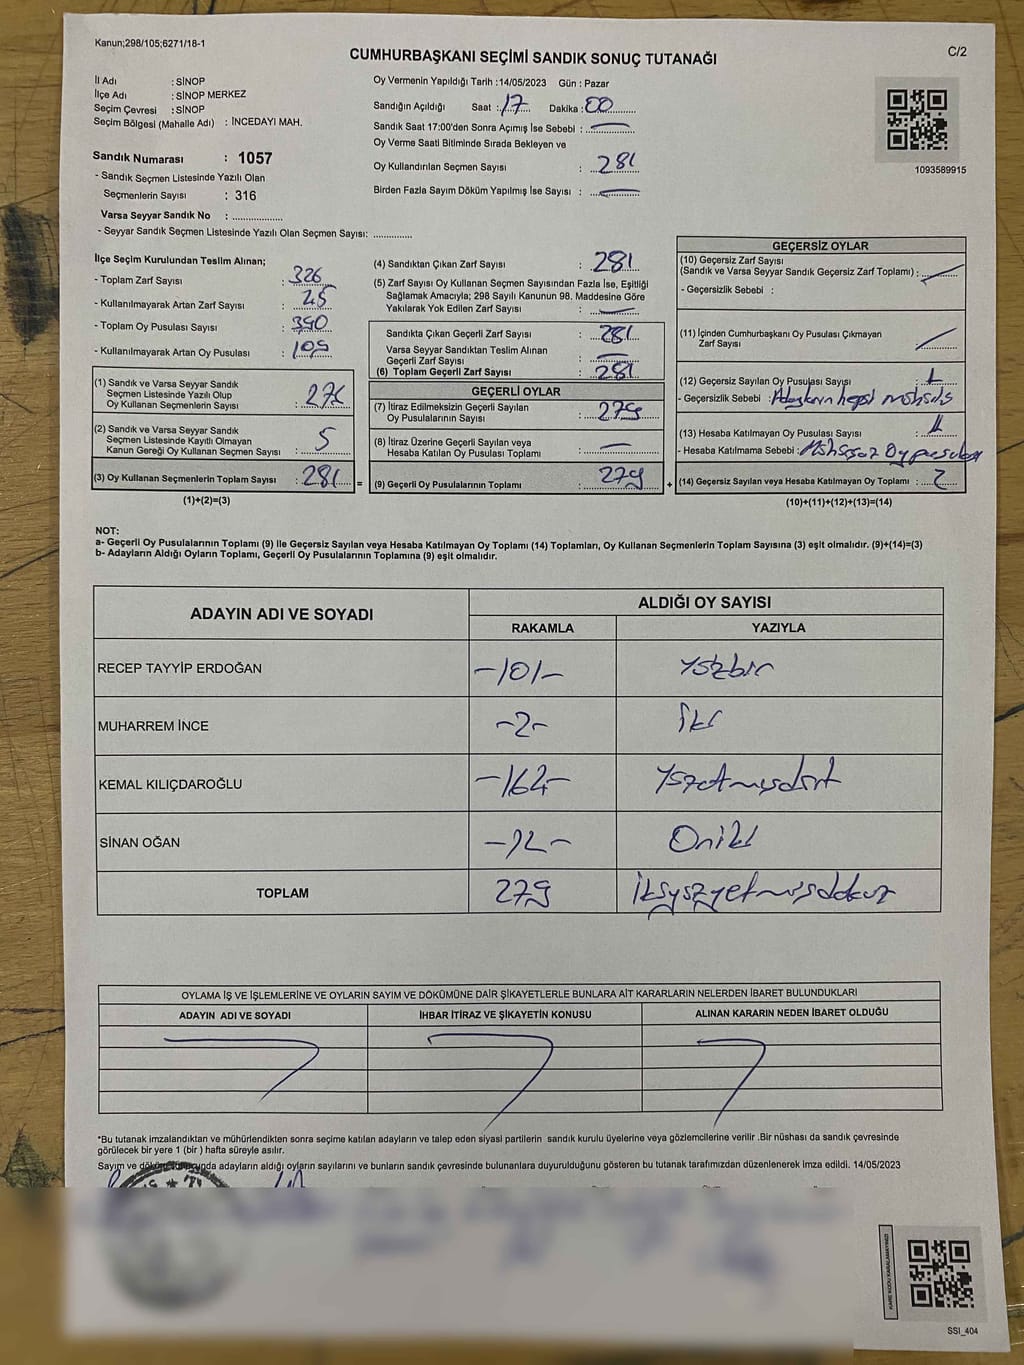 Kanun;298/105;6271/18-1
C/2
CUMHURBAŞKANI SEÇİMİ SANDIK SONUÇ TUTANAĞI
İl Adı : SİNOP
İlçe Adı : SİNOP MERKEZ
Seçim Çevresi : SİNOP
Seçim Bölgesi (Mahalle Adı) : İNCEDAYI MAH.
Sandık Numarası : 1057
- Sandık Seçmen Listesinde Yazılı Olan
Seçmenlerin Sayısı : 316
Varsa Seyyar Sandık No : ................
- Seyyar Sandık Seçmen Listesinde Yazılı Olan Seçmen Sayısı: .............
Oy Vermenin Yapıldığı Tarih :14/05/2023 Gün : Pazar
Sandığın Açıldığı Saat : 17 Dakika : 00
Sandık Saat 17:00'den Sonra Açımış İse Sebebi :
Oy Verme Saati Bitiminde Sırada Bekleyen ve
Oy Kullandırılan Seçmen Sayısı : 281
Birden Fazla Sayım Döküm Yapılmış İse Sayısı :
1093589915
İlçe Seçim Kurulundan Teslim Alınan;
- Toplam Zarf Sayısı : 326
- Kullanılmayarak Artan Zarf Sayısı : 45
- Toplam Oy Pusulası Sayısı : 390
- Kullanılmayarak Artan Oy Pusulası : 109
(1) Sandık ve Varsa Seyyar Sandık
Seçmen Listesinde Yazılı Olup
Oy Kullanan Seçmenlerin Sayısı : 276
(2) Sandık ve Varsa Seyyar Sandık
Seçmen Listesinde Kayıtlı Olmayan
Kanun Gereği Oy Kullanan Seçmen Sayısı : 5
(3) Oy Kullanan Seçmenlerin Toplam Sayısı : 281 =
(1)+(2)=(3)
(4) Sandıktan Çıkan Zarf Sayısı : 281
(5) Zarf Sayısı Oy Kullanan Seçmen Sayısından Fazla İse, Eşitliği
Sağlamak Amacıyla; 298 Sayılı Kanunun 98. Maddesine Göre
Yakılarak Yok Edilen Zarf Sayısı :
Sandıkta Çıkan Geçerli Zarf Sayısı : 281
Varsa Seyyar Sandıktan Teslim Alınan
Geçerli Zarf Sayısı :
(6) Toplam Geçerli Zarf Sayısı : 281
GEÇERLİ OYLAR
(7) İtiraz Edilmeksizin Geçerli Sayılan
Oy Pusulalarının Sayısı : 279
(8) İtiraz Üzerine Geçerli Sayılan veya
Hesaba Katılan Oy Pusulası Toplamı :
(9) Geçerli Oy Pusulalarının Toplamı : 279 +
GEÇERSİZ OYLAR
(10) Geçersiz Zarf Sayısı
(Sandık ve Varsa Seyyar Sandık Geçersiz Zarf Toplamı) :
- Geçersizlik Sebebi :
(11) İçinden Cumhurbaşkanı Oy Pusulası Çıkmayan
Zarf Sayısı :
(12) Geçersiz Sayılan Oy Pusulası Sayısı : 1
- Geçersizlik Sebebi : Adayların hepsi mühürlü
(13) Hesaba Katılmayan Oy Pusulası Sayısı : 1
- Hesaba Katılmama Sebebi : Mühürsüz Oy pusulası
(14) Geçersiz Sayılan veya Hesaba Katılmayan Oy Toplamı : 2
(10)+(11)+(12)+(13)=(14)
NOT:
a- Geçerli Oy Pusulalarının Toplamı (9) İle Geçersiz Sayılan veya Hesaba Katılmayan Oy Toplamı (14) Toplamları, Oy Kullanan Seçmenlerin Toplam Sayısına (3) eşit olmalıdır. (9)+(14)=(3)
b- Adayların Aldığı Oyların Toplamı, Geçerli Oy Pusulalarının Toplamına (9) eşit olmalıdır.
ADAYIN ADI VE SOYADI
ALDIĞI OY SAYISI
RAKAMLA YAZIYLA
RECEP TAYYİP ERDOĞAN -101- yüzbir
MUHARREM İNCE -2- İki
KEMAL KILIÇDAROĞLU -164- yüzatmışdört
SİNAN OĞAN -12- Oniki
TOPLAM 279 İkiyüzyetmişdokuz
OYLAMA İŞ VE İŞLEMLERİNE VE OYLARIN SAYIM VE DÖKÜMÜNE DAİR ŞİKAYETLERLE BUNLARA AİT KARARLARIN NELERDEN İBARET BULUNDUKLARI
ADAYIN ADI VE SOYADI İHBAR İTİRAZ VE ŞİKAYETİN KONUSU ALINAN KARARIN NEDEN İBARET OLDUĞU
*Bu tutanak imzalandıktan ve mühürlendikten sonra seçime katılan adayların ve talep eden siyasi partilerin sandık kurulu üyelerine veya gözlemcilerine verilir .Bir nüshası da sandık çevresinde
görülecek bir yere 1 (bir ) hafta süreyle asılır.
Sayım ve döküm sonucunda adayların aldığı oyların sayılarını ve bunların sandık çevresinde bulunanlara duyurulduğunu gösteren bu tutanak tarafımızdan düzenlenerek imza edildi. 14/05/2023
KARE KODU KARALAMAYINIZ!
SSI_404